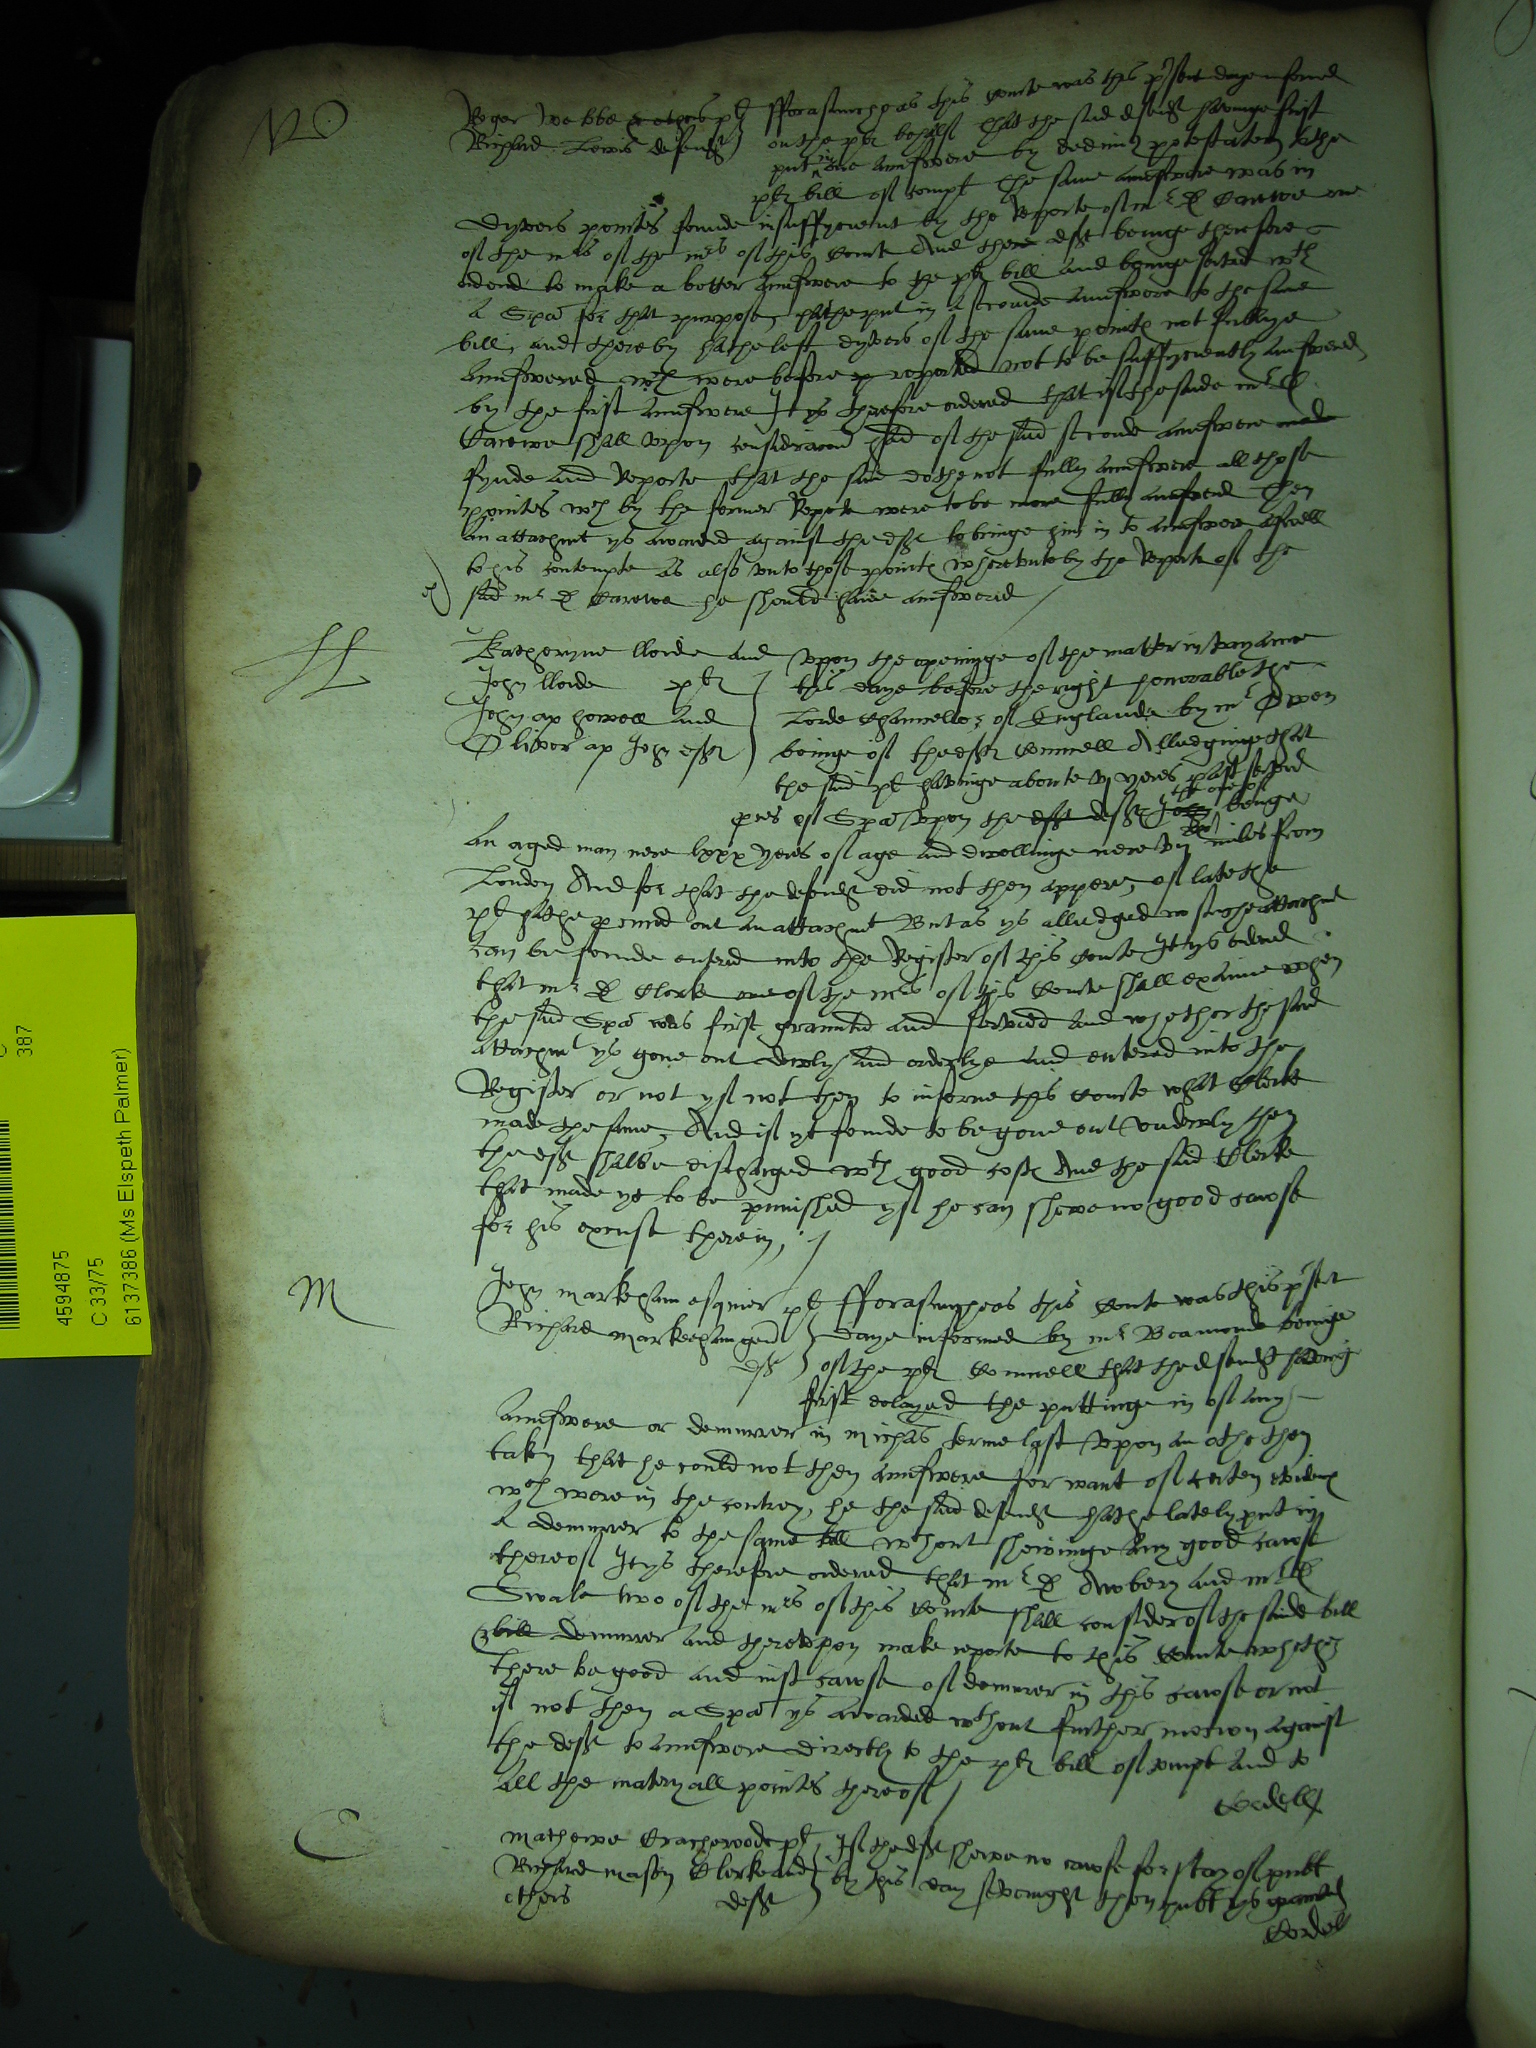 W
Roger Webbe & others pl
Richard Lewis defendt
fforasmuch as this Courte was this present daye informed
on the pl behalf that the said defendt havinge first
put in one answere by dedimus potestatem to the
pl bill of compt the same answere was in
dyvers pointes founde insuffycient by the Reporte of mr D Carewe one
of the mrs of the mrs of this Courte And there deft beinge therfore
ordered to make a better answere to the pl bill and beinge served wth
a Spa for that purpose, hathe put in a seconde answere to the same
bill, and thereby hathe left dyvers of the same pointes not fullye
answered wch were before reported not to be suffycyently answered
by the first answere It ys therefore ordered that if the saide mr D
Carewe shall upon consideracon had of the said seconde answere made
fynde and Reporte that the same dothe not fully answere all those
pointes wch by the former Reporte were to be more fully answered Then
an attachmt ys awarded against the deft to bringe him in to answere aswell
to his contempte as also unto those pointes whereunto by the Reporte of the
said mr D Carewe he should have answered
ff
Katheryne lloide and
John lloide pl
John ap howell and
Oliver ap John deft
Upon the openinge of the matter in variance
this daye before the right honorable the
Lorde Chauncellor of Englande by mr Owen
beinge of the deft Counsell Alledginge that
the said pl havinge aboute vj yeres past served
pces of Spa upon the deft deft John the one of beinge
an aged man nere lxxx yeres of age and dwellinge nere miles from
London And for that the defendt did not then appere, of late the
pl hathe procured out an attachmt But as ys alledged no suche attachmt
can be founde entered into the Register of this Courte It ys ordered
that mr D Clerk one of the mrs of this Courte shall examine when
the said Spa was first graunted and served And whether the said
attachmt ys gone out dewly and orderlye and entered into the
Register or not yf not then to informe this Courte what Clerke
made the same, And if yt founde to be gone out undewly then
the deft shalbe discharged wth good costes And the said Clerke
that made yt to be punished yf he can shewe no good cause
for his excuse therein
M
John Markeham esquier pl
Richard Markeham gent
deft
fforasmuch as this Courte was this present
daye informed by mr Beamonde beinge
of the pl Counsell that the defendt having
first delayed the puttinge in of any
answere or demurrer in Michas terme last Upon an othe then
taken that he could not then answere for want of certen evidences
wch were in the contrey, he the said defendt hathe lately put in
a demurrer to the same bill wthout shewinge any good cause
thereof It ys therefore ordered that mr D Awbery and mr D
Swale two of the mrs of this Courte shall consider of the saide bill
& bill demurrer and thereupon make reporte to this Courte whether
there be good and just cause of demurrer in this cause or not
if not then a Spa ys awarded wthout further mocion against
the deft to answere directly to the pl bill of compt and to
all the materyall pointes thereof
Cordell
C
Mathewe Crachewode pl
Richard Mason Clerke and
others deft
If the deft shewe no cause for stay of publ
by this day sevenight then publ ys graunted
Cordell
387
4594875
C 33/75
6137386 (Ms Elspeth Palmer)